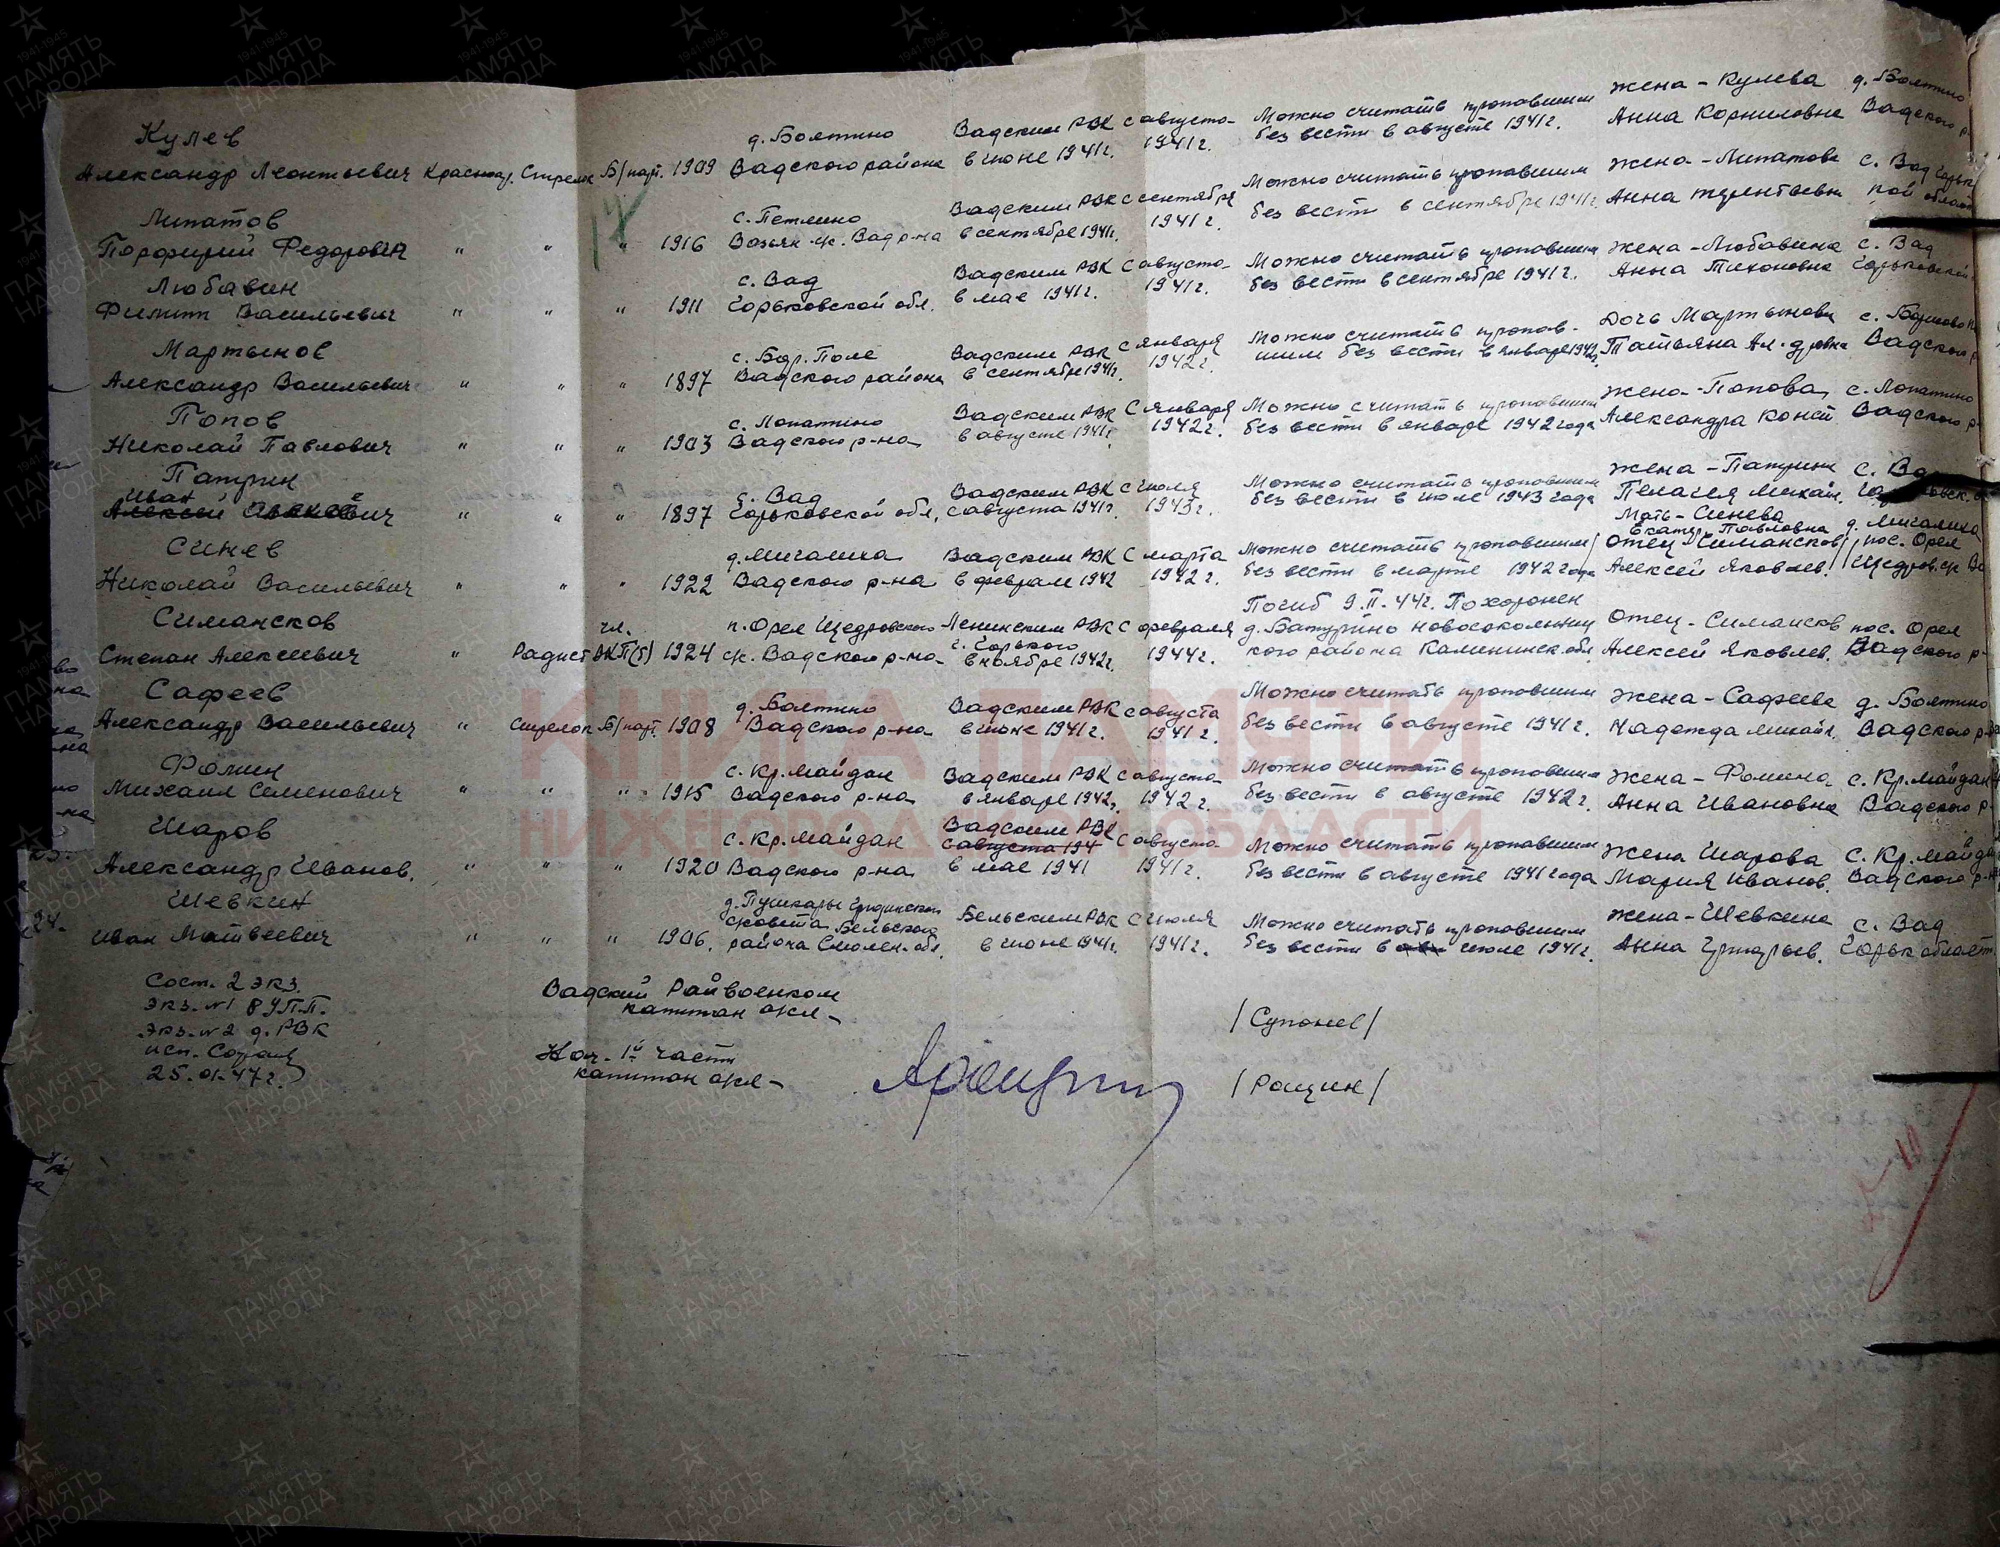 Кулев
Александр Леонтьевич Красноар. Стрелок Б/парт. 1909 д. Болтино Вадского района Вадским РВК в июне 1941г. С августа 1941г. Можно считать пропавшим без вести в августе 1941г. жена - Кулева Анна Корниловна д. Болтино Вадского р-
Липатов
Порфирий Федорович " " " 1916 с. Петлино Вазьян с/с. Вад р-на Вадским РВК в сентябре 1941г. С сентября 1941г. Можно считать пропавшим без вести в сентябре 1941г. жена - Липатова Анна с. Вад Горьк
Любавин
Филипп Васильевич " " " 1911 с. Вад Горьковской обл. Вадским РВК в мае 1941г. С августа 1941г. Можно считать пропавшим без вести в сентябре 1941г. жена - Любавина Анна Тихоновна с. Вад Горьковской
Мартынов
Александр Васильевич " " " 1897 с. Бор. Поле Вадского района Вадским РВК в сентябре 1941г. С января 1942г. Можно считать пропавшим без вести в январе 1942г. Дочь Мартынова Татьяна Ал-дровна с. Борисово Вадского р
Попов
Николай Павлович " " " 1903 с. Лопатино Вадского р-на Вадским РВК в августе 1941г. С января 1942г. Можно считать пропавшим без вести в январе 1942 года жена - Попова Александра Конст с. Лопатино Вадского р
Патрин
Иван
Алексеевич " " " 1897 с. Вад Горьковской обл. Вадским РВК с августа 1941г. С июля 1943г. Можно считать пропавшим без вести в июле 1943 года жена - Патрина Пелагея Михайл. с. Вад
Синев
Николай Васильевич " " " 1922 д. Мигалиха Вадского р-на Вадским РВК в феврале 1942 С марта 1942г. Можно считать пропавшим без вести в марте 1942 года Мать - Синева Екатер. Павловна д. Мигалиха Отец Симансков Алексей Яковлев. пос. Орел Щедров. с/с
Симансков
Степан Алексеевич " Радист чл. ВКП(б) 1924 п. Орел Щедровского с/с. Вадского р-на Ленинским РВК г. Горького в ноябре 1942г. С февраля 1944г. Погиб 9.II.44г. Похоронен д. Батурино Новосокольнического района Калининск. обл. Отец - Симансков Алексей Яковлев. пос. Орел Вадского р-
Сафеев
Александр Васильевич " Стрелок Б/парт. 1908 д. Болтино Вадского р-на Вадским РВК в июне 1941г. С августа 1941г. Можно считать пропавшим без вести в августе 1941г. жена - Сафеева Надежда Михайл. д. Болтино Вадского р-
Фомин
Михаил Семенович " " " 1915 с. Кр. Майдан Вадского р-на Вадским РВК в январе 1942г. С августа 1942г. Можно считать пропавшим без вести в августе 1942г. жена - Фомина Анна Ивановна с. Кр. Майдан Вадского р-
Шаров
Александр Иванов. " " " 1920 с. Кр. Майдан Вадского р-на Вадским РВК с августа 194 в мае 1941 С августа 1941г. Можно считать пропавшим без вести в августе 1941 года жена Шарова Мария Иванов. с. Кр. Майда Вадского р-н
Шевкин
Иван Матвеевич " " " 1906. д. Пушкары с/совета Бельского района Смолен. обл. Бельским РВК в июне 1941г. С июля 1941г. Можно считать пропавшим без вести в июле 1941г. жена - Шевкина Анна Григорьев. с. Вад Горьк област.
Сост. 2 экз.
Экз. №1 в УПП.
Экз. №2 д. РВК
исп.
25.01.47г.
Вадский Райвоенком
капитан а/сл-
/Супонев/
Нач. 1й части
капитан а/сл-
/Рощин/
КНИГА ПАМЯТИ
НИЖЕГОРОДСКОЙ ОБЛАСТИ
1941-1945
ПАМЯТЬ
НАРОДА